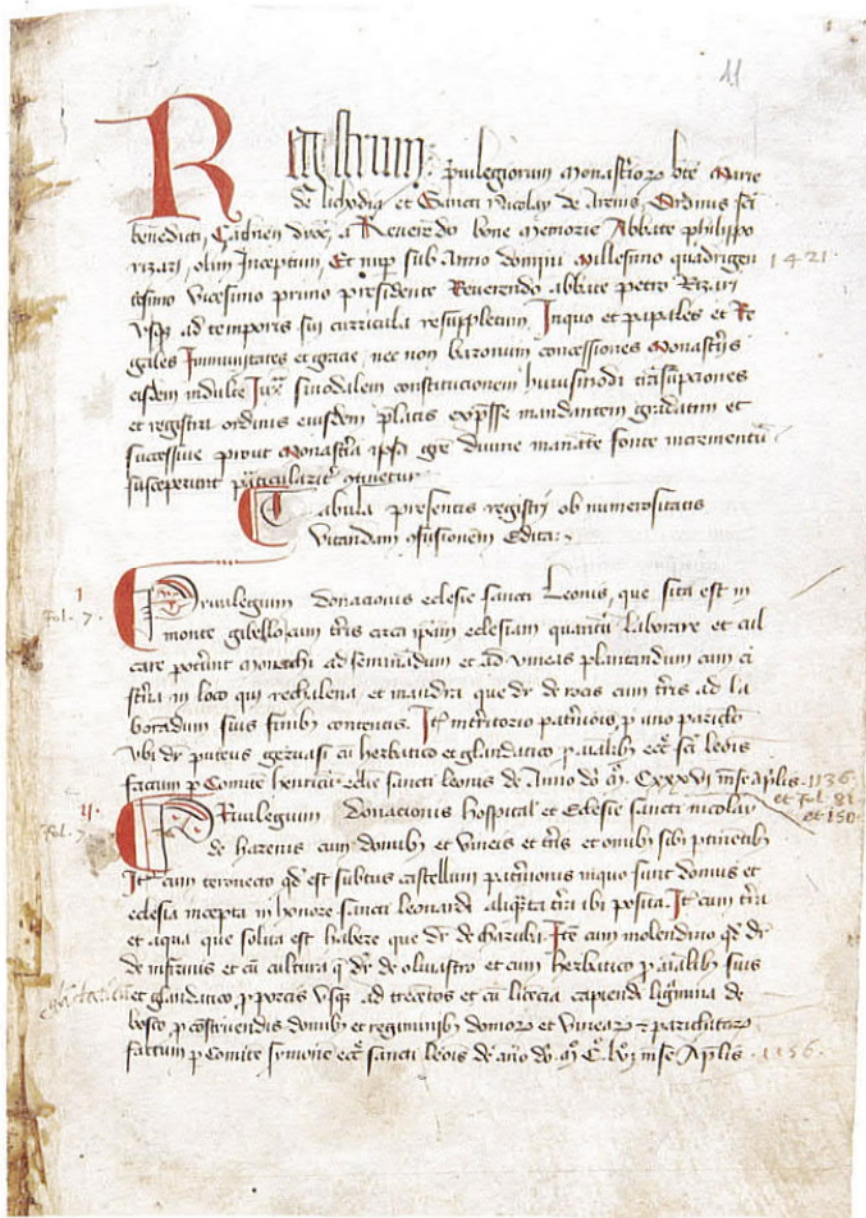 11
Registrum privilegiorum Monasterioro bte Marie
de lichodia et Sancti Nicolay de Arenis, Ordinis sci
benedicti, Cathen dioc, a Reverendo bone memorie Abbate philippo
rizari, olim Inceptum, Et nup sub Anno domini Millesimo quadrigen 1421
tesimo vicesimo primo presidente Reverendo abbate petro Rizari
vsq ad temporis sui curricula resuppletum, Inquo et papales et Re
gales Immunitates et gracie, nec non baronum concessiones Monastiis
eisdem indulte Iux sinodalem constitucionem huiusmodi
et registra ordinis eiusdem platis expsse mandantem gradatim et
successive prout Monastia ipsa gre divine manate fonte incrementu
susceperunt particularit qtinetur
Tabula presentis registri ob numerositatis
vitandam qfusionem Edita
I
fol. 7. Privilegium donacionis eclesie sancti Leonis, que sita est in
monte gibello cum tris circa ipam eclesiam quantu laborare et cul
care potint monachi ad seminadum et ad vineas plantandum cum ci
stria in loco qui rechalena et mandra que dr de rocis cum tris ad la
boradum suis finib contentis. It in tritorio patinois, p uno pariclo
vbi dr puteus gervasi cu herbatico et glandatico p aialib ecce sci leois
factum p Comite henricu eclie sancti leonis de Anno do M. Cxxxvi mse Aplis. 1136
et fol. 81
et 150
II.
fol. 7 Privilegium donacionis hospital et Eclesie sancti nicolay
de harenis cum domib et vineis et tris et omib sibi ptinetib
It cum qd est subtus castellum patinionis inquo sunt domus et
eclesia incepta in honore sancti leonardi tra ibi posita. It cum tra
et aqua que solita est habere que dr de charubi. Ite cum molendino qd dr
de infirmis et cu cultura q dr de olivastro et cum herbatico p aialib suis
et glandatico p porcis vsq ad trecetos et cu licecia capiendi ligmina de
bosco p costruendis domib et domoro et vinearo
factum p Comite symone ecce sancti leois de ano do. M C. lvi mse Aplis. 1156.